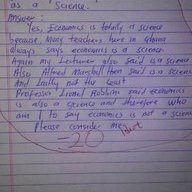 as a Science.
Answer:
Yes, Economics is totally a science
because, Many teachers here in Ghana
always says economics is a science.
Again my Lecturer also said is a science
Also Alfred Marshall then said is a science
And lastly not the least
Professor Lionel Robbins said economics
is also a science and therefore who
am I to say economics is not a science
Please consider me
-20